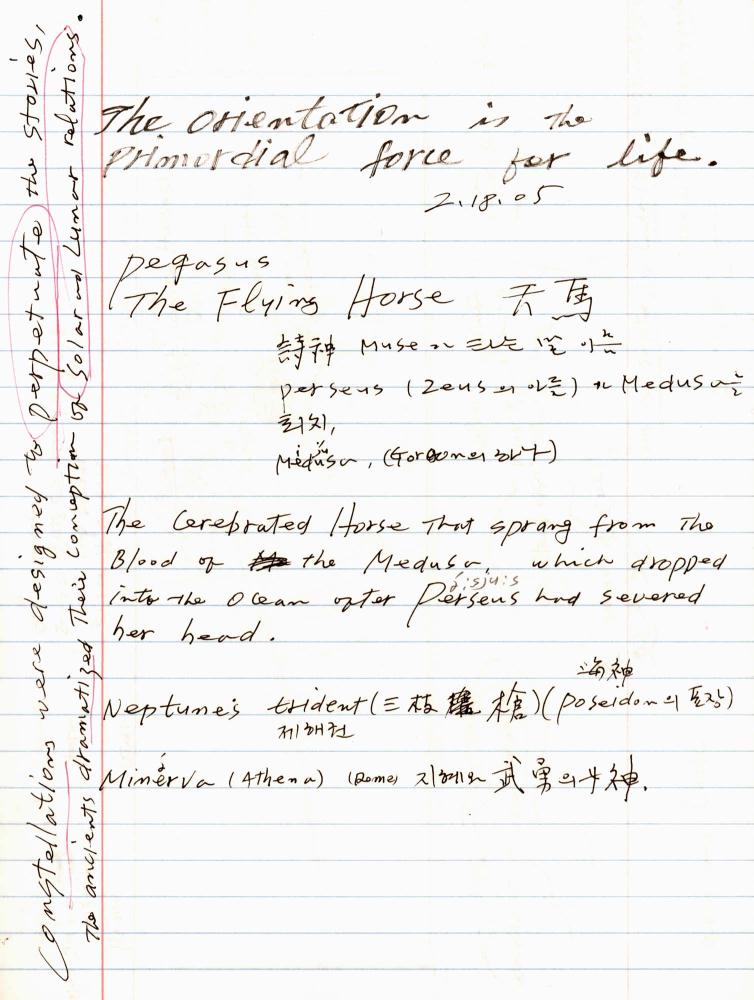 Constellations were designed to perpetuate the stories,
The ancients dramatized Their Conception of Solar and Lunar relations.
The orientation is the
primordial force for life.
2.18.05
pegasus
The Flying Horse 天馬
詩神 Muse가 타는 말 이름
perseus (Zeus의 아들)가 Medusa를
퇴치,
Medusa, (Gorgon의 하나)
The Cerebrated Horse That sprang from The
Blood of the Medusa, which dropped
into the Ocean after Perseus had severed
her head.
海神
Neptune's trident (三枝 槍) (poseidon의 표장)
제해권
Minerva (Athena) (Rome) 지혜와 武勇의 女神.